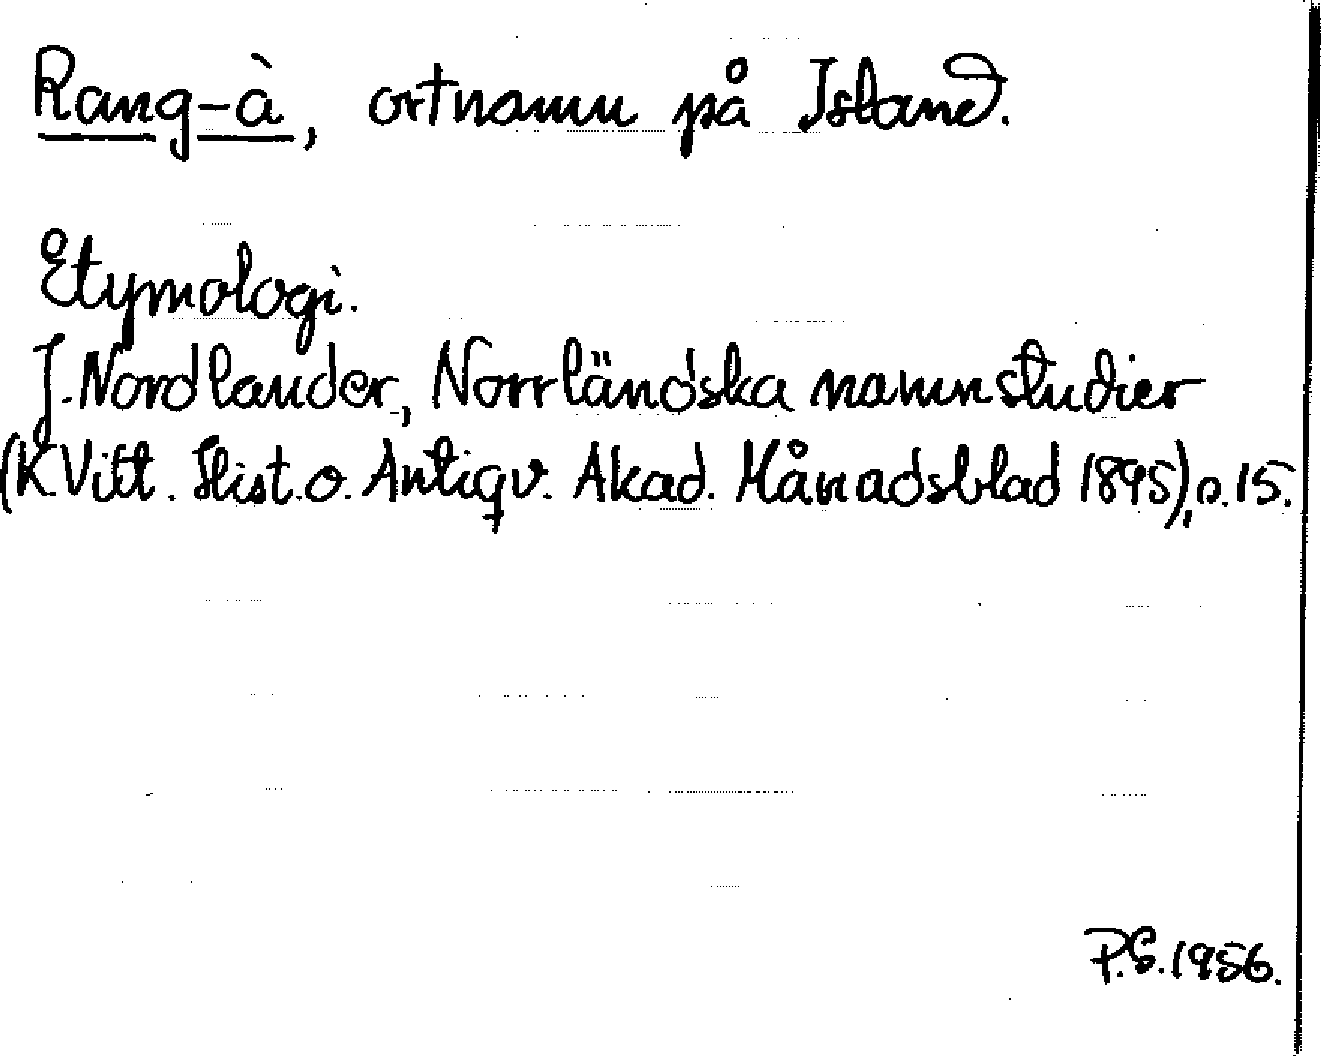 Rang-à, ortnamn på Island.
Etymologi.
J. Nordlander, Norrländska namnstudier
(K. Vitt. Hist. o. Antiqv. Akad. Månadsblad 1895), p. 15.
P.G. 1956.